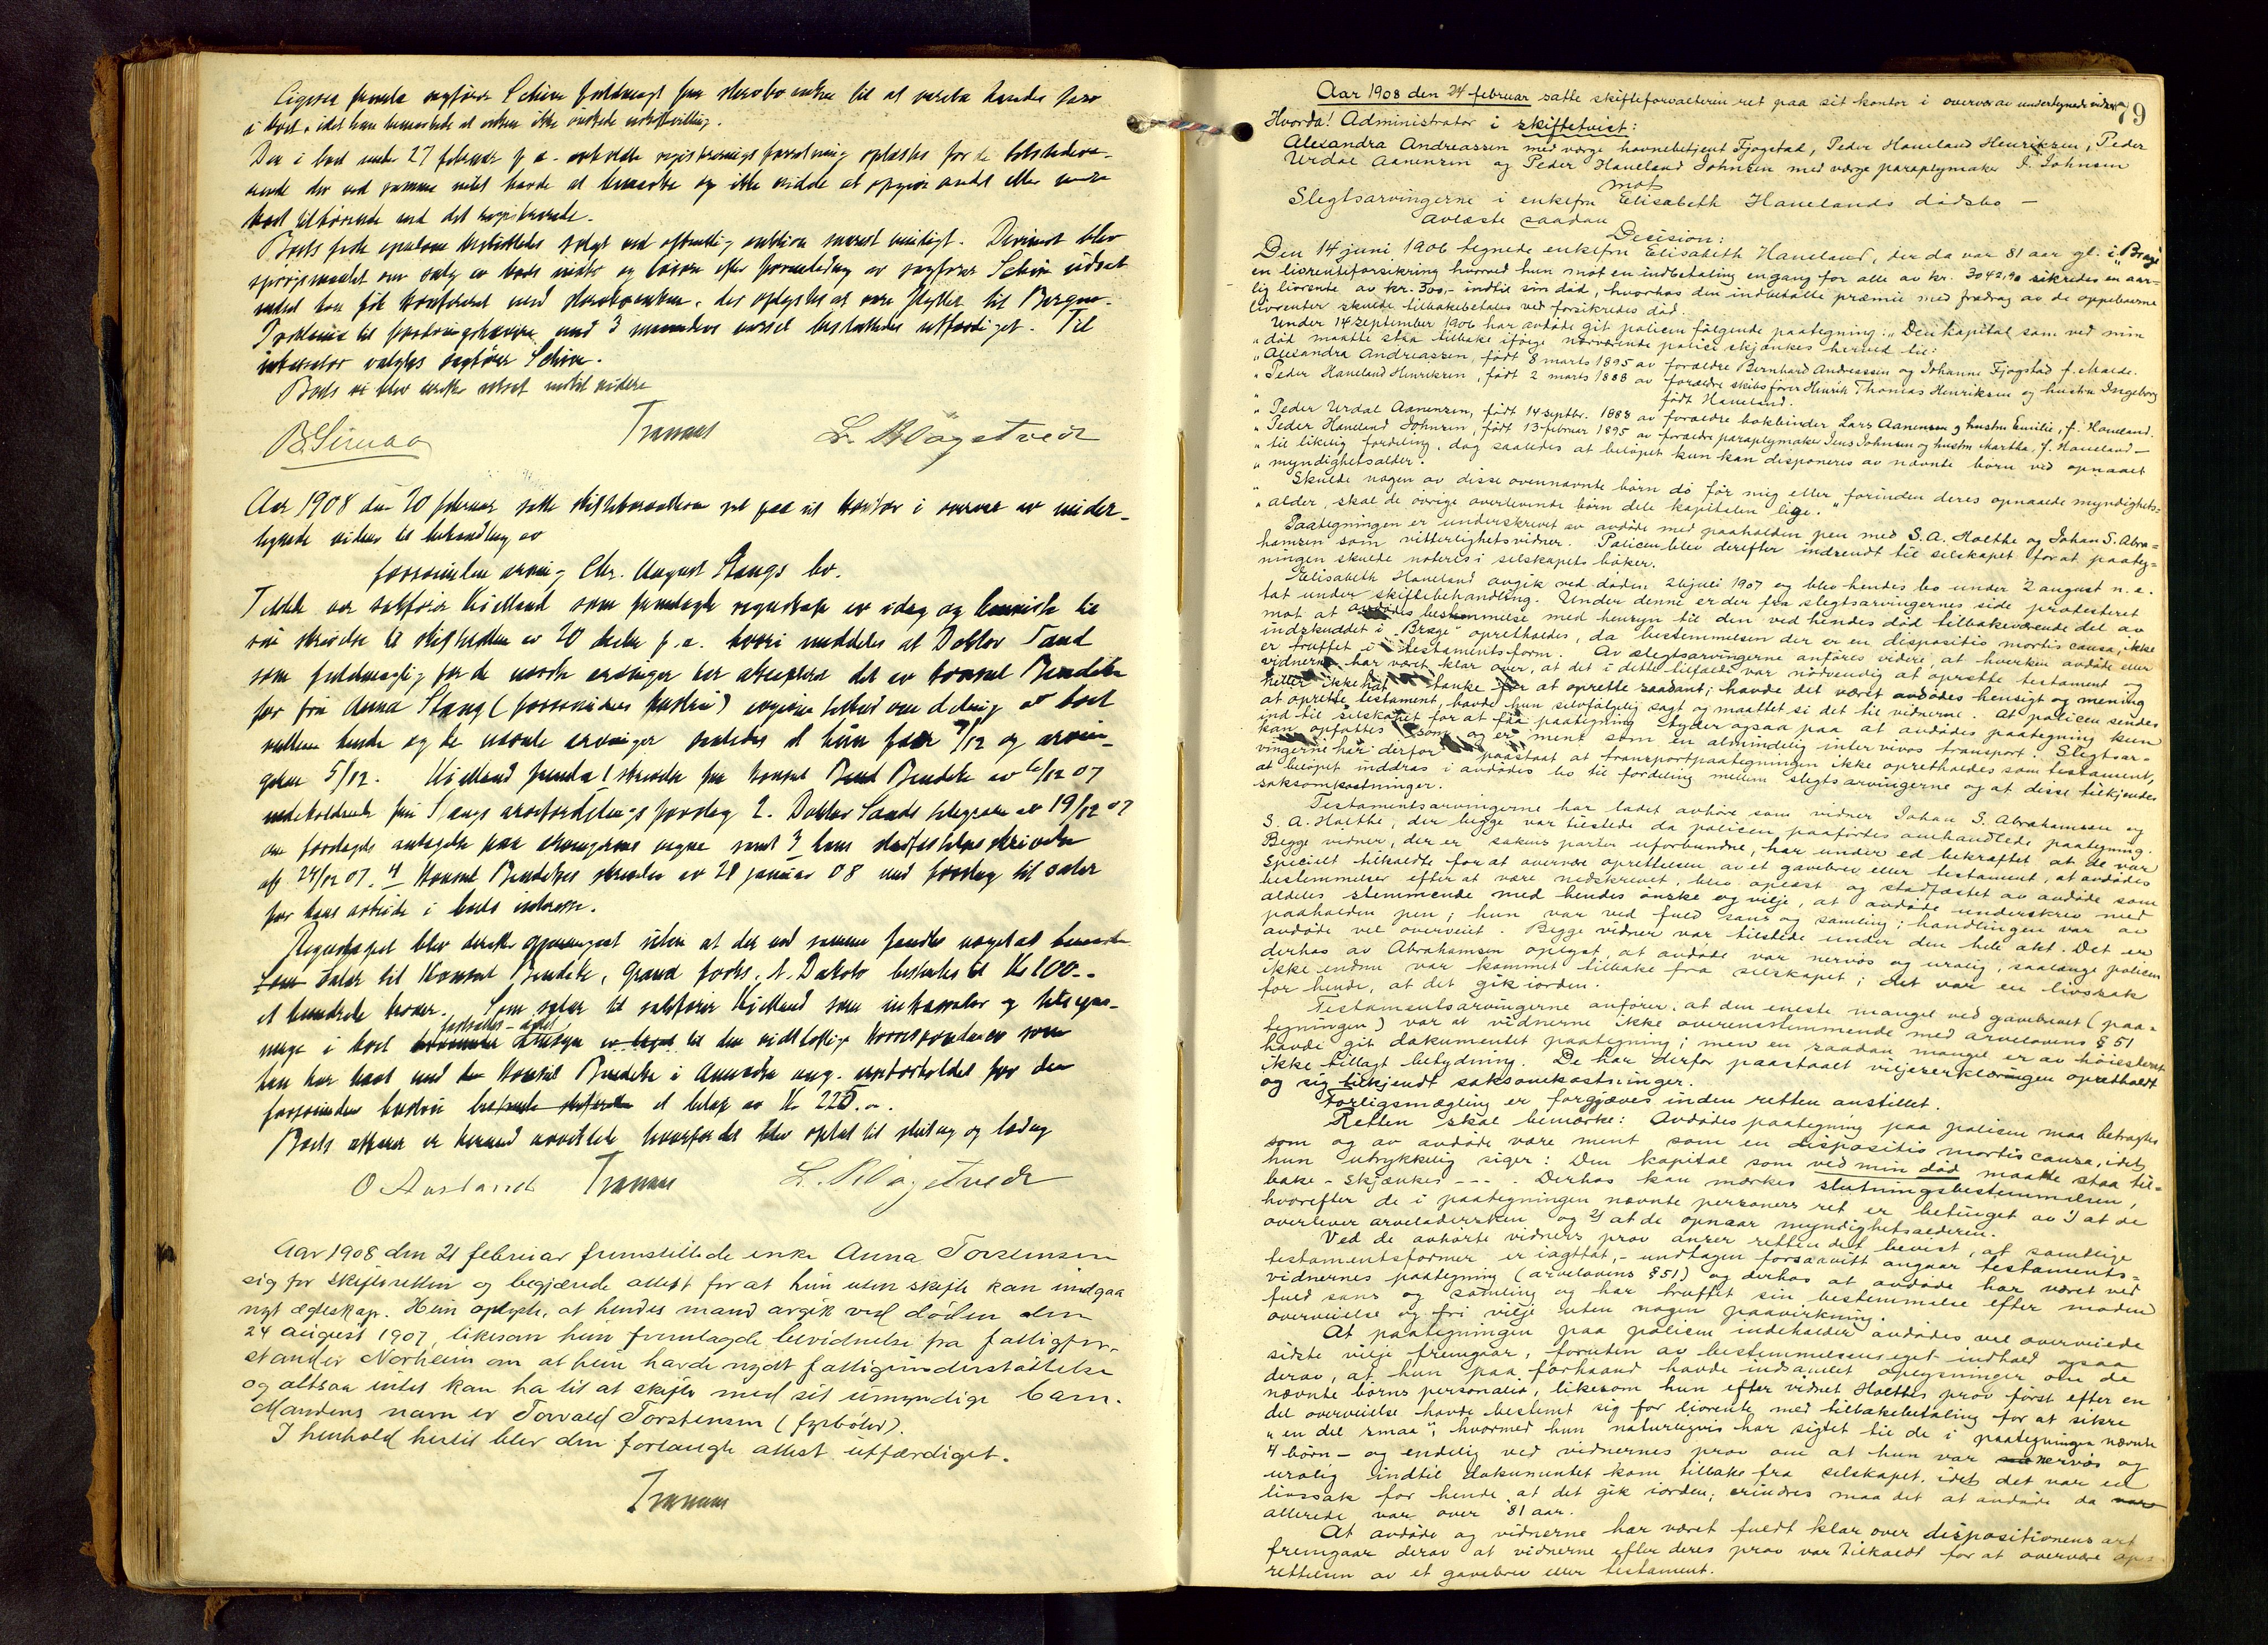 Ligesaa fremla sagfører Schiøn fuldmagt fra skrobo enken til at vareta hendes tarv
i boet, idet han bemærkede at enken ikke ønskede utskiftning.
Den i boet under 27 februar p a. avholdte registreringsforretning oplæstes for de tilstedevæ-
rende der ved samme intet havde at bemerke og ikke vidste at opgive andet eller mere
boet tilhørende end det registrerede.
Boets faste eiendom besluttedes solgt ved offentlig auktion snarest muligt. Derimot blev
spørgsmaalet om salg av boets indbo og løsøre efter formening av sagfører Schiøn utsat
indtil han fik konfereret med enken, der oplystes at være flyttet til Bergen.
Proklama til fordringshavere med 3 maaneders varsel besluttedes utfærdiget. Til
inkassator valgtes sagfører Schiøn.
Boets vi blev derefter utsat indtil videre
B. Simon Tranaas L. Bløgstvedt
Aar 1908 den 20 februar satte skifteforvalteren ret paa sit kontor i overvær av under-
tegnede vidner til behandling av
forsvundne arving Chr. August Stangs bo.
Tilstede var sakfører Kielland som fremlagde regnskap av idag og henviste til
sin skrivelse til skifteretten av 20 decbr p. a. hvori meddeles at Doktor Sand
som fuldmægtig for de norske arvinger har akcepteret det av konsul Bendeke
for fru Anna Stang (forsvundnes hustru) avgivne tilbud om deling av boet
mellem hende og de norske arvinger saaledes at hun faar 7/12 og arvin-
gerne 5/12. Kielland fremla 1 skrivelse fra konsul Bend Bendeke av 6/12 07
indeholdende fru Stangs arvefordelings forslag 2. Doktor Sands telegram av 19/12 07
om forslagets antagelse paa arvingernes vegne samt 3 hans stadfæstelsesskrivelse
af 24/12 07. 4 Konsul Bendekes skrivelse av 28 januar 08 med forslag til salær
for hans arbeide i boets interesse.
Regnskapet blev derefter gjennemgaat uten at der ved samme fandtes noget at bemerke
Som salær til Konsul Bendeke, Grand forks, N. Dakota besluttedes Kr 100.-
et hundrede kroner. Som salær til sakfører Kielland som inkassator og
i boet fastsattes - idet hensyn til den vidtløftige korrespondance som
han har havt med Konsul Bendeke i Amerika ang. for den
forsvundnes hustru et beløp av Kr 225.-.
Boets affærer er hermed avviklet hvorfor det blev optat til slutning og lodning
O Aarland Tranaas L. Bløgstvedt
Aar 1908 den 21 februar fremstillede enke Anna Torstensen
sig for skifteretten og begjærede attest for at hun uten skifte kan indgaa
nyt ægteskap. Hun oplyste, at hendes mand avgik ved døden den
24 august 1907, likesom hun fremlagde bevidnelse fra fattigfor-
stander Norheim om at hun havde nydt fattigunderstøttelse
og altsaa intet kan ha til at skifte med sit umyndige barn.
Mandens navn er Torvald Torstensen (fyrbøter).
I henhold hertil blev den forlangte attest utfærdiget.
Tranaas
79
Aar 1908 den 24 februar satte skifteforvalteren ret paa sit kontor i overvær av undertegnede vidner
Hvorda! Administrator i skiftetvist:
Alexandra Andreassen med værge havnebetjent Fjogstad, Peder Haneland Henriksen, Peder
Urdal Aanensen og Peder Haneland Johnsen med værge paraplymaker J. Johnsen
mot
Slegtsarvingerne i enkefru Elisabeth Hanelands dødsbo -
avlæste saadan
Decision:
Den 14 juni 1906 tegnede enkefru Elisabeth Haneland, der da var 81 aar gl. i "Brage"
en livrenteforsikring hvorved hun mot en indbetaling engang for alle av kr. 3042,90 sikredes en aar-
lig livrente av kr. 300,- indtil sin død, hvorhos den indbetalte præmie med fradrag av de oppebaarne
livrenter skulde tilbakebetales ved forsikredes død.
Under 14 september 1906 har avdøde git policen følgende paategning: "Den kapital som ved min
"død maatte staa tilbake ifølge nærværende police skjænkes herved til:
"Alexandra Andreassen, født 8 marts 1895 av forældre Bernhard Andreassen og Johanne Fjogstad f. Malde.
"Peder Haneland Henriksen, født 2 marts 1888 av forældre skibsfører Henrik Thomas Henriksen og hustru Ingeborg
" født Haneland.
"Peder Urdal Aanensen, født 14 septbr. 1888 av forældre bokbinder Lars Aanensen og hustru Emilie, f. Haneland.
"Peder Haneland Johnsen, født 13 februar 1895 av forældre paraplymaker Jens Johnsen og hustru Martha, f. Haneland -
"til likelig fordeling, dog saaledes at beløpet kun kan disponeres av nævnte børn ved opnaaet
"myndighetsalder.
" Skulde nogen av disse ovennævnte børn dø før mig eller forinden deres opnaaede myndighets-
"alder, skal de øvrige overlevende børn dele kapitalen lige."
Paategningen er underskrevet av avdøde med paaholden pen med S. A. Holthe og Johan S. Abra-
hamsen som vitterlighetsvidner. Policen blev derefter indsendt til selskapet for at paateg-
ningen skulde noteres i selskapets bøker.
Elisabeth Haneland avgik ved døden 26 juli 1907 og blev hendes bo under 2 august n. e.
tat under skiftebehandling. Under denne er der fra slegtsarvingernes side protesteret
mot at avdødes bestemmelse med hensyn til den ved hendes død tilbakeværende del av
indskuddet i "Brage" opretholdes, da bestemmelsen der er en dispositio mortis causa, ikke
er truffet i testamentsform. Av slegtsarvingerne anføres videre, at hverken avdøde eller
vidnerne har været klar over, at det i dette tilfælde var nødvendig at oprette testament og
heller ikke hat tanke for at oprette saadant; havde det været avdødes hensigt og mening
at oprette testament, havde hun selvfølgelig sagt og maattet si det til vidnerne. At policen sendes
ind til selskapet for at faa paategning tyder ogsaa paa at avdødes paategning kun
kan opfattes som og er ment som en almindelig inter vivos transport. Slegtsar-
vingerne har derfor paastaat at transportpaategningen ikke opretholdes som testament,
at beløpet inddras i avdødes bo til fordeling mellem slegtsarvingerne og at disse tilkjendes
saksomkostninger.
Testamentsarvingerne har ladet avhøre som vidner Johan S. Abrahamsen og
S. A. Holthe, der begge var tilstede da policen paaførtes omhandlede paategning.
Begge vidner, der er sakens parter uforbundne, har under ed bekræftet at de var
specielt tilkaldte for at overvære oprettelsen av et gavebrev eller testament, at avdødes
bestemmelser efter at være nedskrevet, blev oplæst og stadfæstet av avdøde som
aldeles stemmende med hendes ønske og vilje, at avdøde underskrev med
paaholden pen; hun var ved fuld sans og samling; handlingen var av
avdøde vel overveiet. Begge vidner var tilstede under den hele akt. Det er
derhos av Abrahamsen oplyst at avdøde var nervøs og urolig, saalænge policen
ikke endnu var kommet tilbake fra selskapet; det var en livssak
for hende, at det gik iorden.
Testamentsarvingerne anfører, at den eneste mangel ved gavebrevet (paa-
tegningen) var at vidnerne ikke overensstemmende med arvelovens § 51
havde git dokumentet paategning; men en saadan mangel er av høiesteret
ikke tillagt betydning. De har derfor paastaaet viljeserklæringen opretholdt
og sig tilkjendt saksomkostninger.
Forligsmægling er forgjæves inden retten anstillet.
Retten skal bemærke: Avdødes paategning paa policen maa betragtes
som og av avdøde være ment som en dispositio mortis causa, idet
hun utrykkelig siger: Den kapital som ved min død maatte staa til-
bake - skjænkes - - - . Derhos kan mærkes slutningsbestemmelsen,
hvorefter de i paategningen nævnte personers ret er betinget av 1) at de
overlever arveladersken og 2) at de opnaar myndighetsalderen.
Ved de avhørte vidners prov anser retten det bevist, at samtlige
testamentsformer er iagttat, - undtagen forsaavitt angaar testaments-
vidnernes paategning (arvelovens § 51) og derhos at avdøde har været ved
fuld sans og samling og har truffet sin bestemmelse efter moden
overveielse og fri vilje uten nogen paavirkning.
At paategningen paa policen indeholder avdødes vel overveiede
sidste vilje fremgaar, foruten av bestemmelsens eget indhold ogsaa
derav, at hun paa forhaand havde indsamlet oplysninger om de
nævnte børns personalia, likesom hun efter vidnet Holthes prov først efter en
del overveielse havde bestemt sig for livrente med tilbakebetaling for at sikre
"en del smaa", hvormed hun naturligvis har sigtet til de i paategningen nævnte
4 børn - og endelig ved vidnernes prov om at hun var nervøs og
urolig indtil dokumentet kom tilbake fra selskapet, idet det var en
livssak for hende at det gik iorden; erindres maa det at avdøde da
allerede var over 81 aar.
At avdøde og vidnerne har været fuldt klar over dispositionens art
fremgaar derav at vidnerne efter deres prov var tilkaldt for at overvære op-
rettelsen av et gavebrev eller testament.